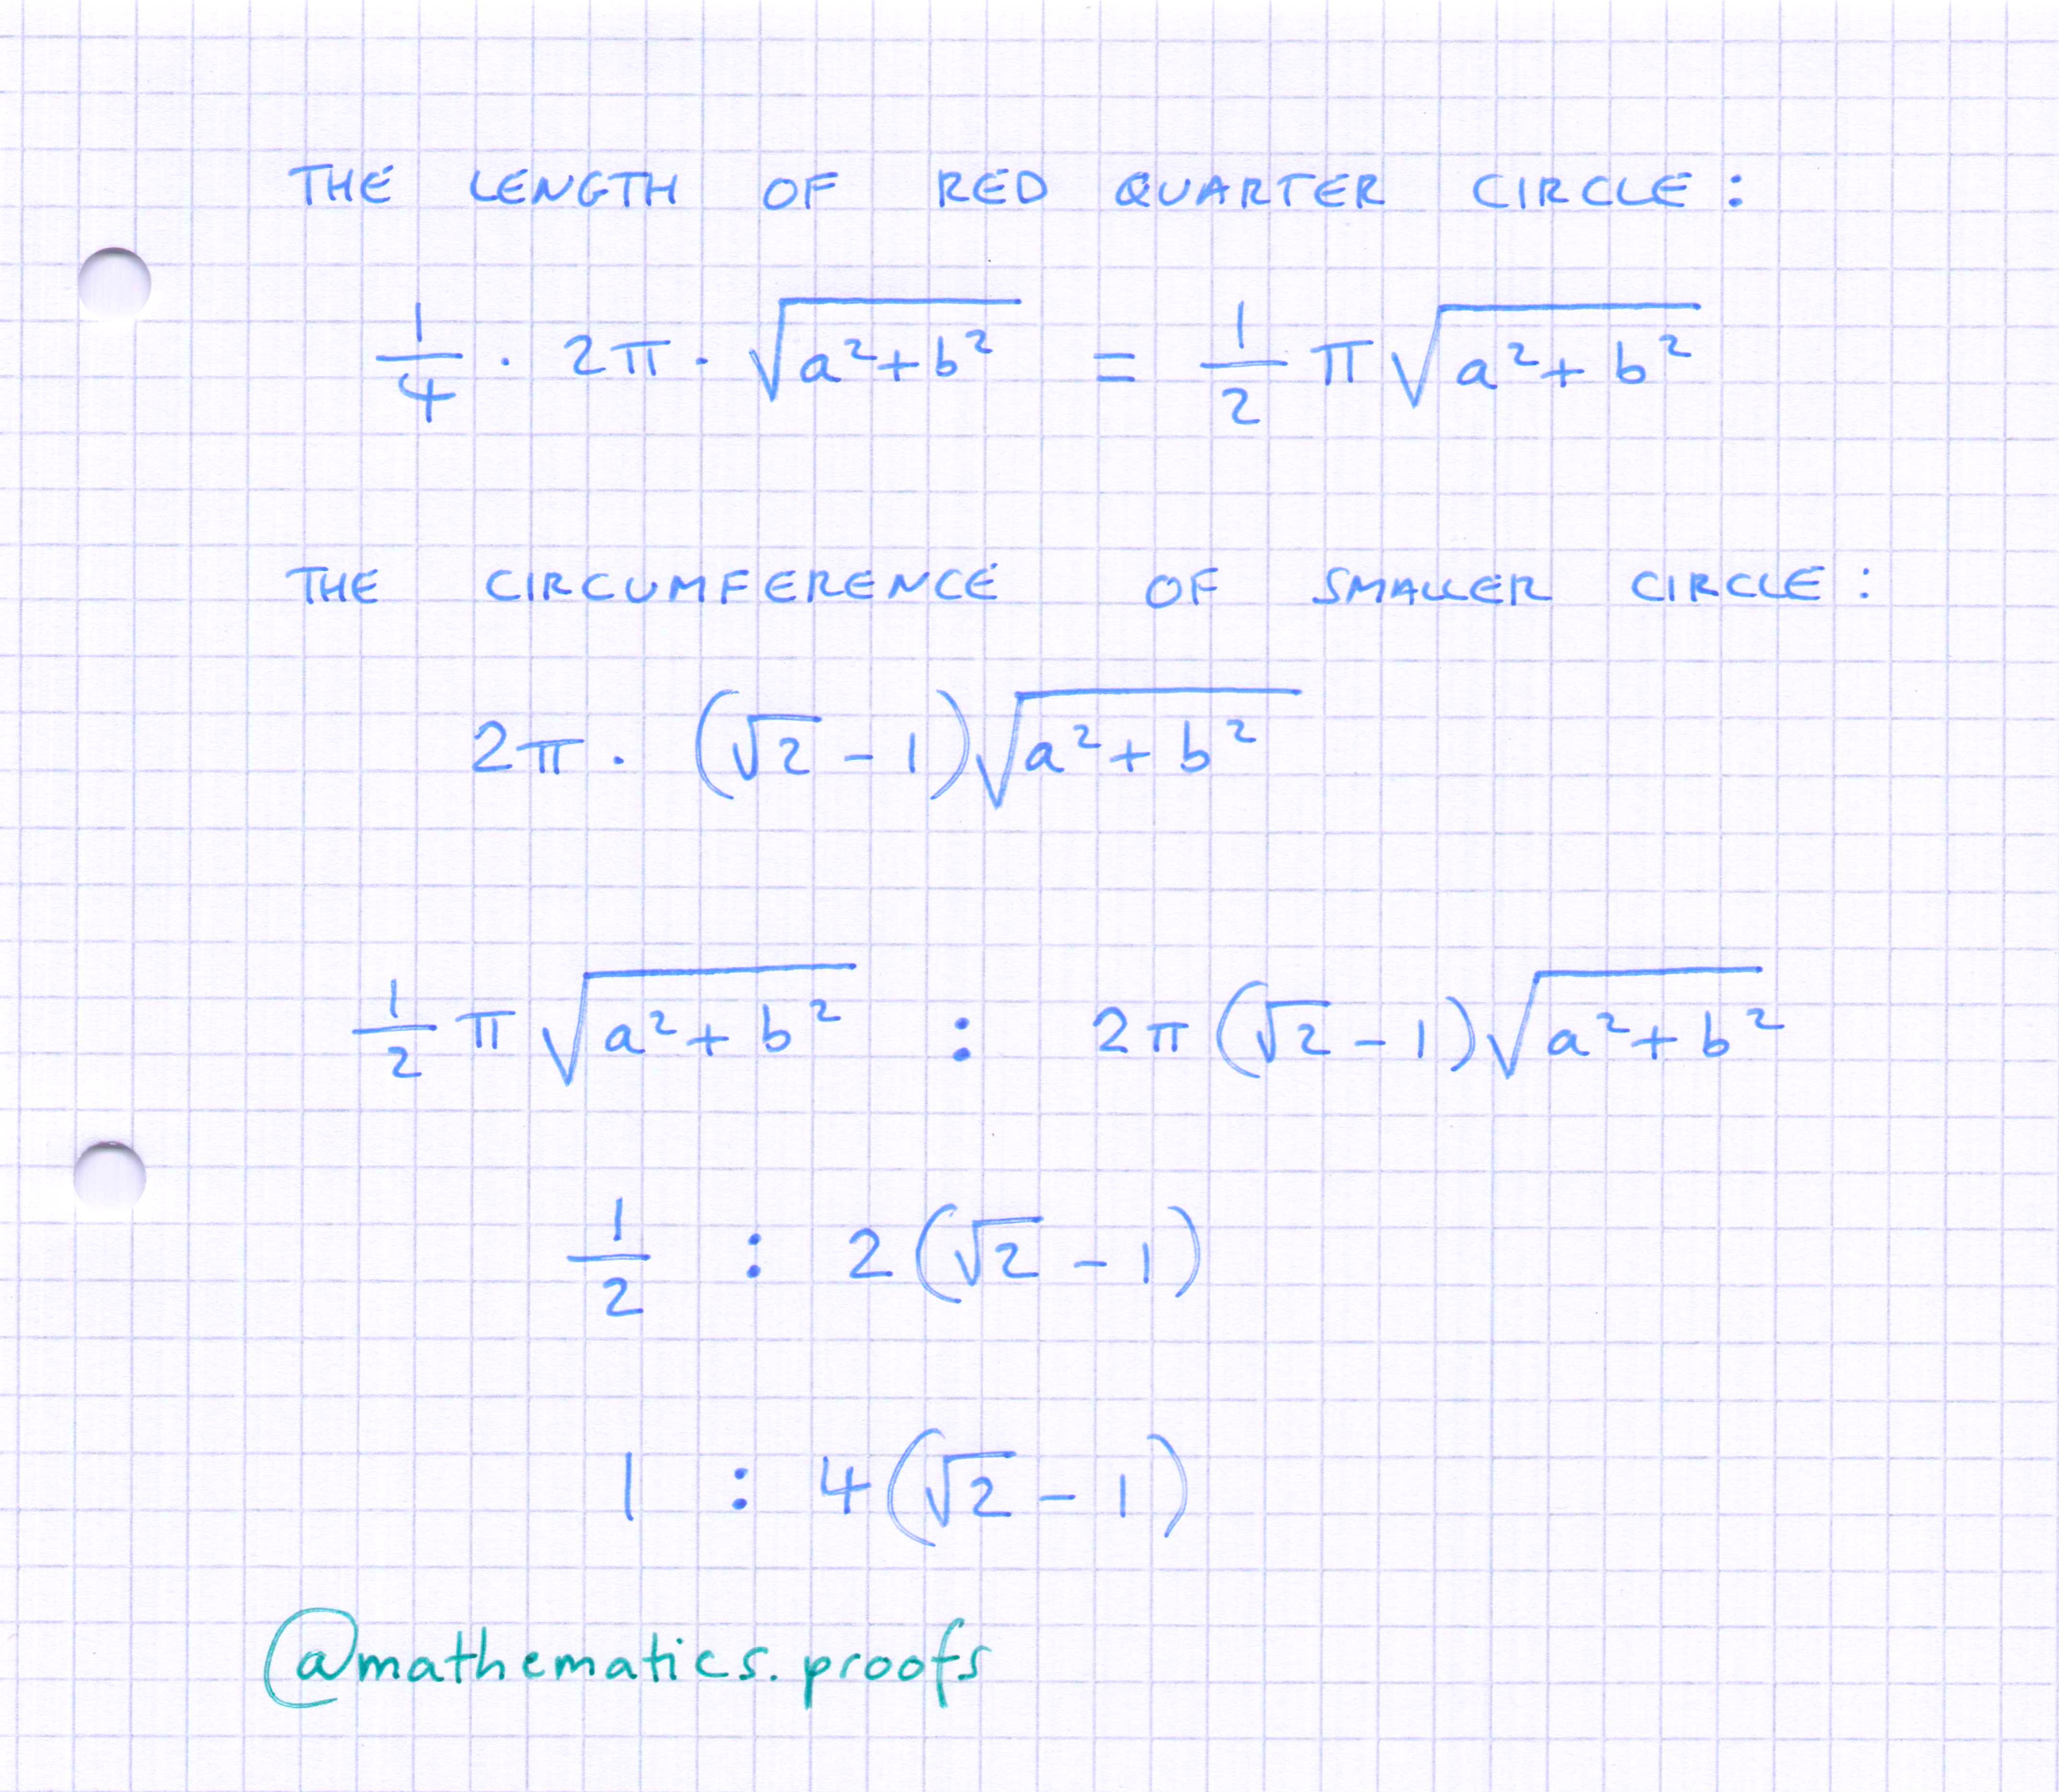 THE LENGTH OF RED QUARTER CIRCLE:
1/4 · 2π · √(a²+b²) = 1/2 π √(a²+b²)
THE CIRCUMFERENCE OF SMALLER CIRCLE:
2π · (√2 - 1)√(a²+b²)
1/2 π √(a²+b²) : 2π (√2 - 1)√(a²+b²)
1/2 : 2(√2 - 1)
1 : 4(√2 - 1)
@mathematics.proofs